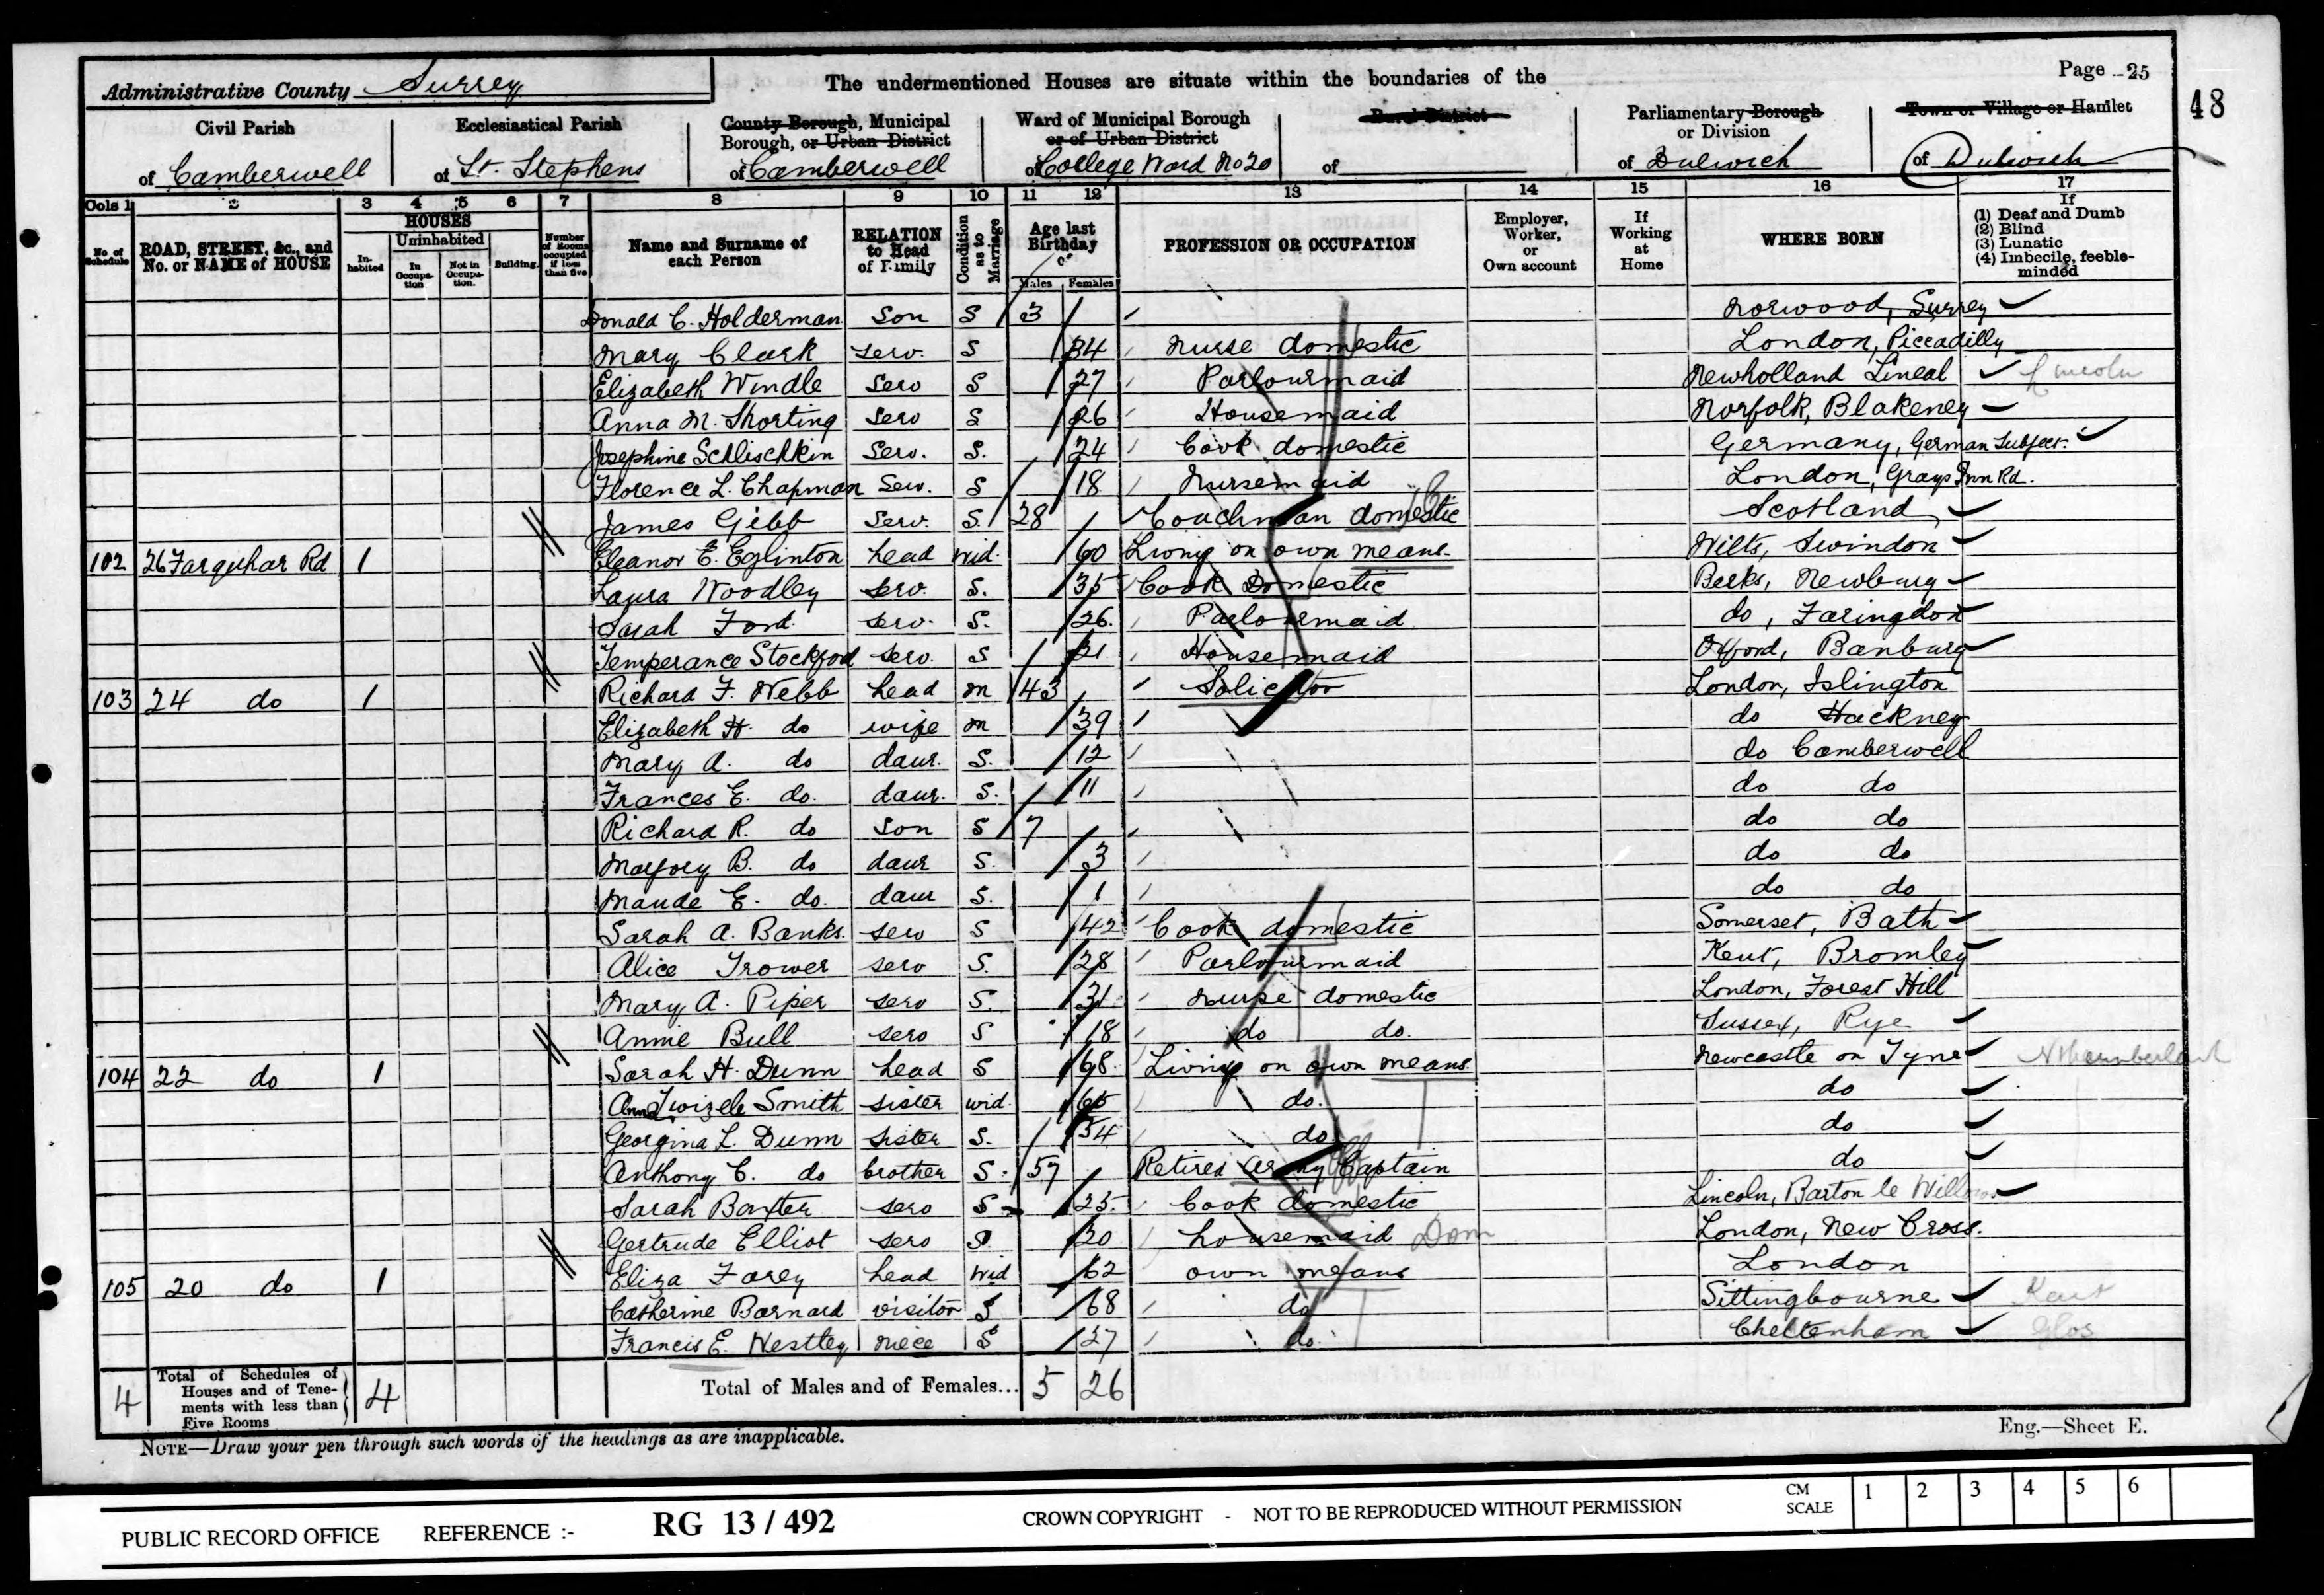 Page 25
Administrative County Surrey
The undermentioned Houses are situate within the boundaries of the
48
Civil Parish of Camberwell
Ecclesiastical Parish of St. Stephens
County Borough, Municipal Borough, or Urban District of Camberwell
Ward of Municipal Borough or of Urban District of College Ward No 20
Rural District of
Parliamentary Borough or Division of Dulwich
Town or Village or Hamlet of Dulwich
Cols 1 2 3 4 5 6 7 8 9 10 11 12 13 14 15 16 17
No of Schedule
ROAD, STREET, &c., and No. or NAME of HOUSE
HOUSES
Inhabited
Uninhabited
In Occupation
Not in Occupation.
Building.
Number of Rooms occupied if less than five
Name and Surname of each Person
RELATION to Head of Family
Condition as to Marriage
Age last Birthday of
Males Females
PROFESSION OR OCCUPATION
Employer, Worker, or Own account
If Working at Home
WHERE BORN
If
(1) Deaf and Dumb
(2) Blind
(3) Lunatic
(4) Imbecile, feeble-minded
Donald C. Holderman Son S 3 Norwood, Surrey
Mary Clark serv. S 34 Nurse domestic London, Piccadilly
Elizabeth Windle Serv S 27 Parlourmaid Newholland Lincal Lincoln
Anna M. Shorting Serv S 26 Housemaid Norfolk, Blakeney
Josephine Schlischkin Serv. S. 24 Cook domestic Germany, German Subject.
Florence L. Chapman Serv. S 18 Nursemaid London, Grays Inn Rd.
James Gibb Serv. S. 28 Coachman domestic Scotland
102 26 Farquhar Rd 1 Eleanor E. Eglinton head Wid. 60 Living on own means. Wilts, Swindon
Laura Woodley serv. S. 35 Cook Domestic Berks, Newbury
Sarah Ford. serv. S. 26. Parlourmaid do, Faringdon
Temperance Stockford serv. S 21 Housemaid Oxford, Banbury
103 24 do 1 Richard F. Webb head m 43 Solicitor London, Islington
Elizabeth H. do wife m 39 do Hackney
Mary A. do daur. S. 12 do Camberwell
Frances E. do. daur. S. 11 do do
Richard R. do Son S 7 do do
Marjory B. do daur S. 3 do do
Maude E. do. daur S. 1 do do
Sarah A. Banks serv S 42 Cook domestic Somerset, Bath
Alice Trower serv S. 28 Parlourmaid Kent, Bromley
Mary A. Piper serv S. 31 Nurse domestic London, Forest Hill
Annie Bull serv S 18 do do. Sussex, Rye
104 22 do 1 Sarah H. Dunn head S 68 Living on own means. Newcastle on Tyne Nthumberland
Anna Twizele Smith sister wid. 65 do. do
Georgina L. Dunn sister S. 54 do. do
Anthony C. do brother S. 57 Retired Army Captain do
Sarah Baxter serv S 25. Cook domestic Lincoln, Barton le Willows
Gertrude Elliot serv S. 20 housemaid Dom London, New Cross.
105 20 do 1 Eliza Farey head Wid 62 own means London
Catherine Barnard visitor S 68 do Sittingbourne Kent
Francis E. Westley niece S 27 do. Cheltenham Glos
4 Total of Schedules of Houses and of Tenements with less than Five Rooms 4 Total of Males and of Females... 5 26
NOTE—Draw your pen through such words of the headings as are inapplicable.
Eng.—Sheet E.
PUBLIC RECORD OFFICE REFERENCE :- RG 13 / 492 CROWN COPYRIGHT - NOT TO BE REPRODUCED WITHOUT PERMISSION CM SCALE 1 2 3 4 5 6